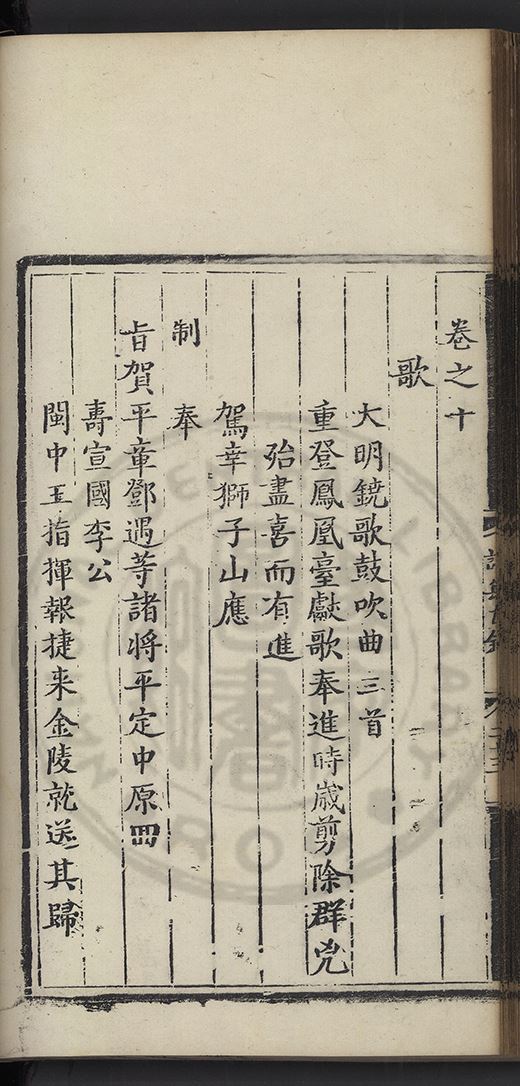 卷之十
歌
大明鐃歌鼓吹曲三首
重登鳳凰臺獻歌奉進時歲剪除群兇
殆盡喜而有進
駕幸獅子山應
制　奉
旨賀平章鄧遇等諸将平定中原四
壽宣國李公
閩中王指揮報捷来金陵就送其歸